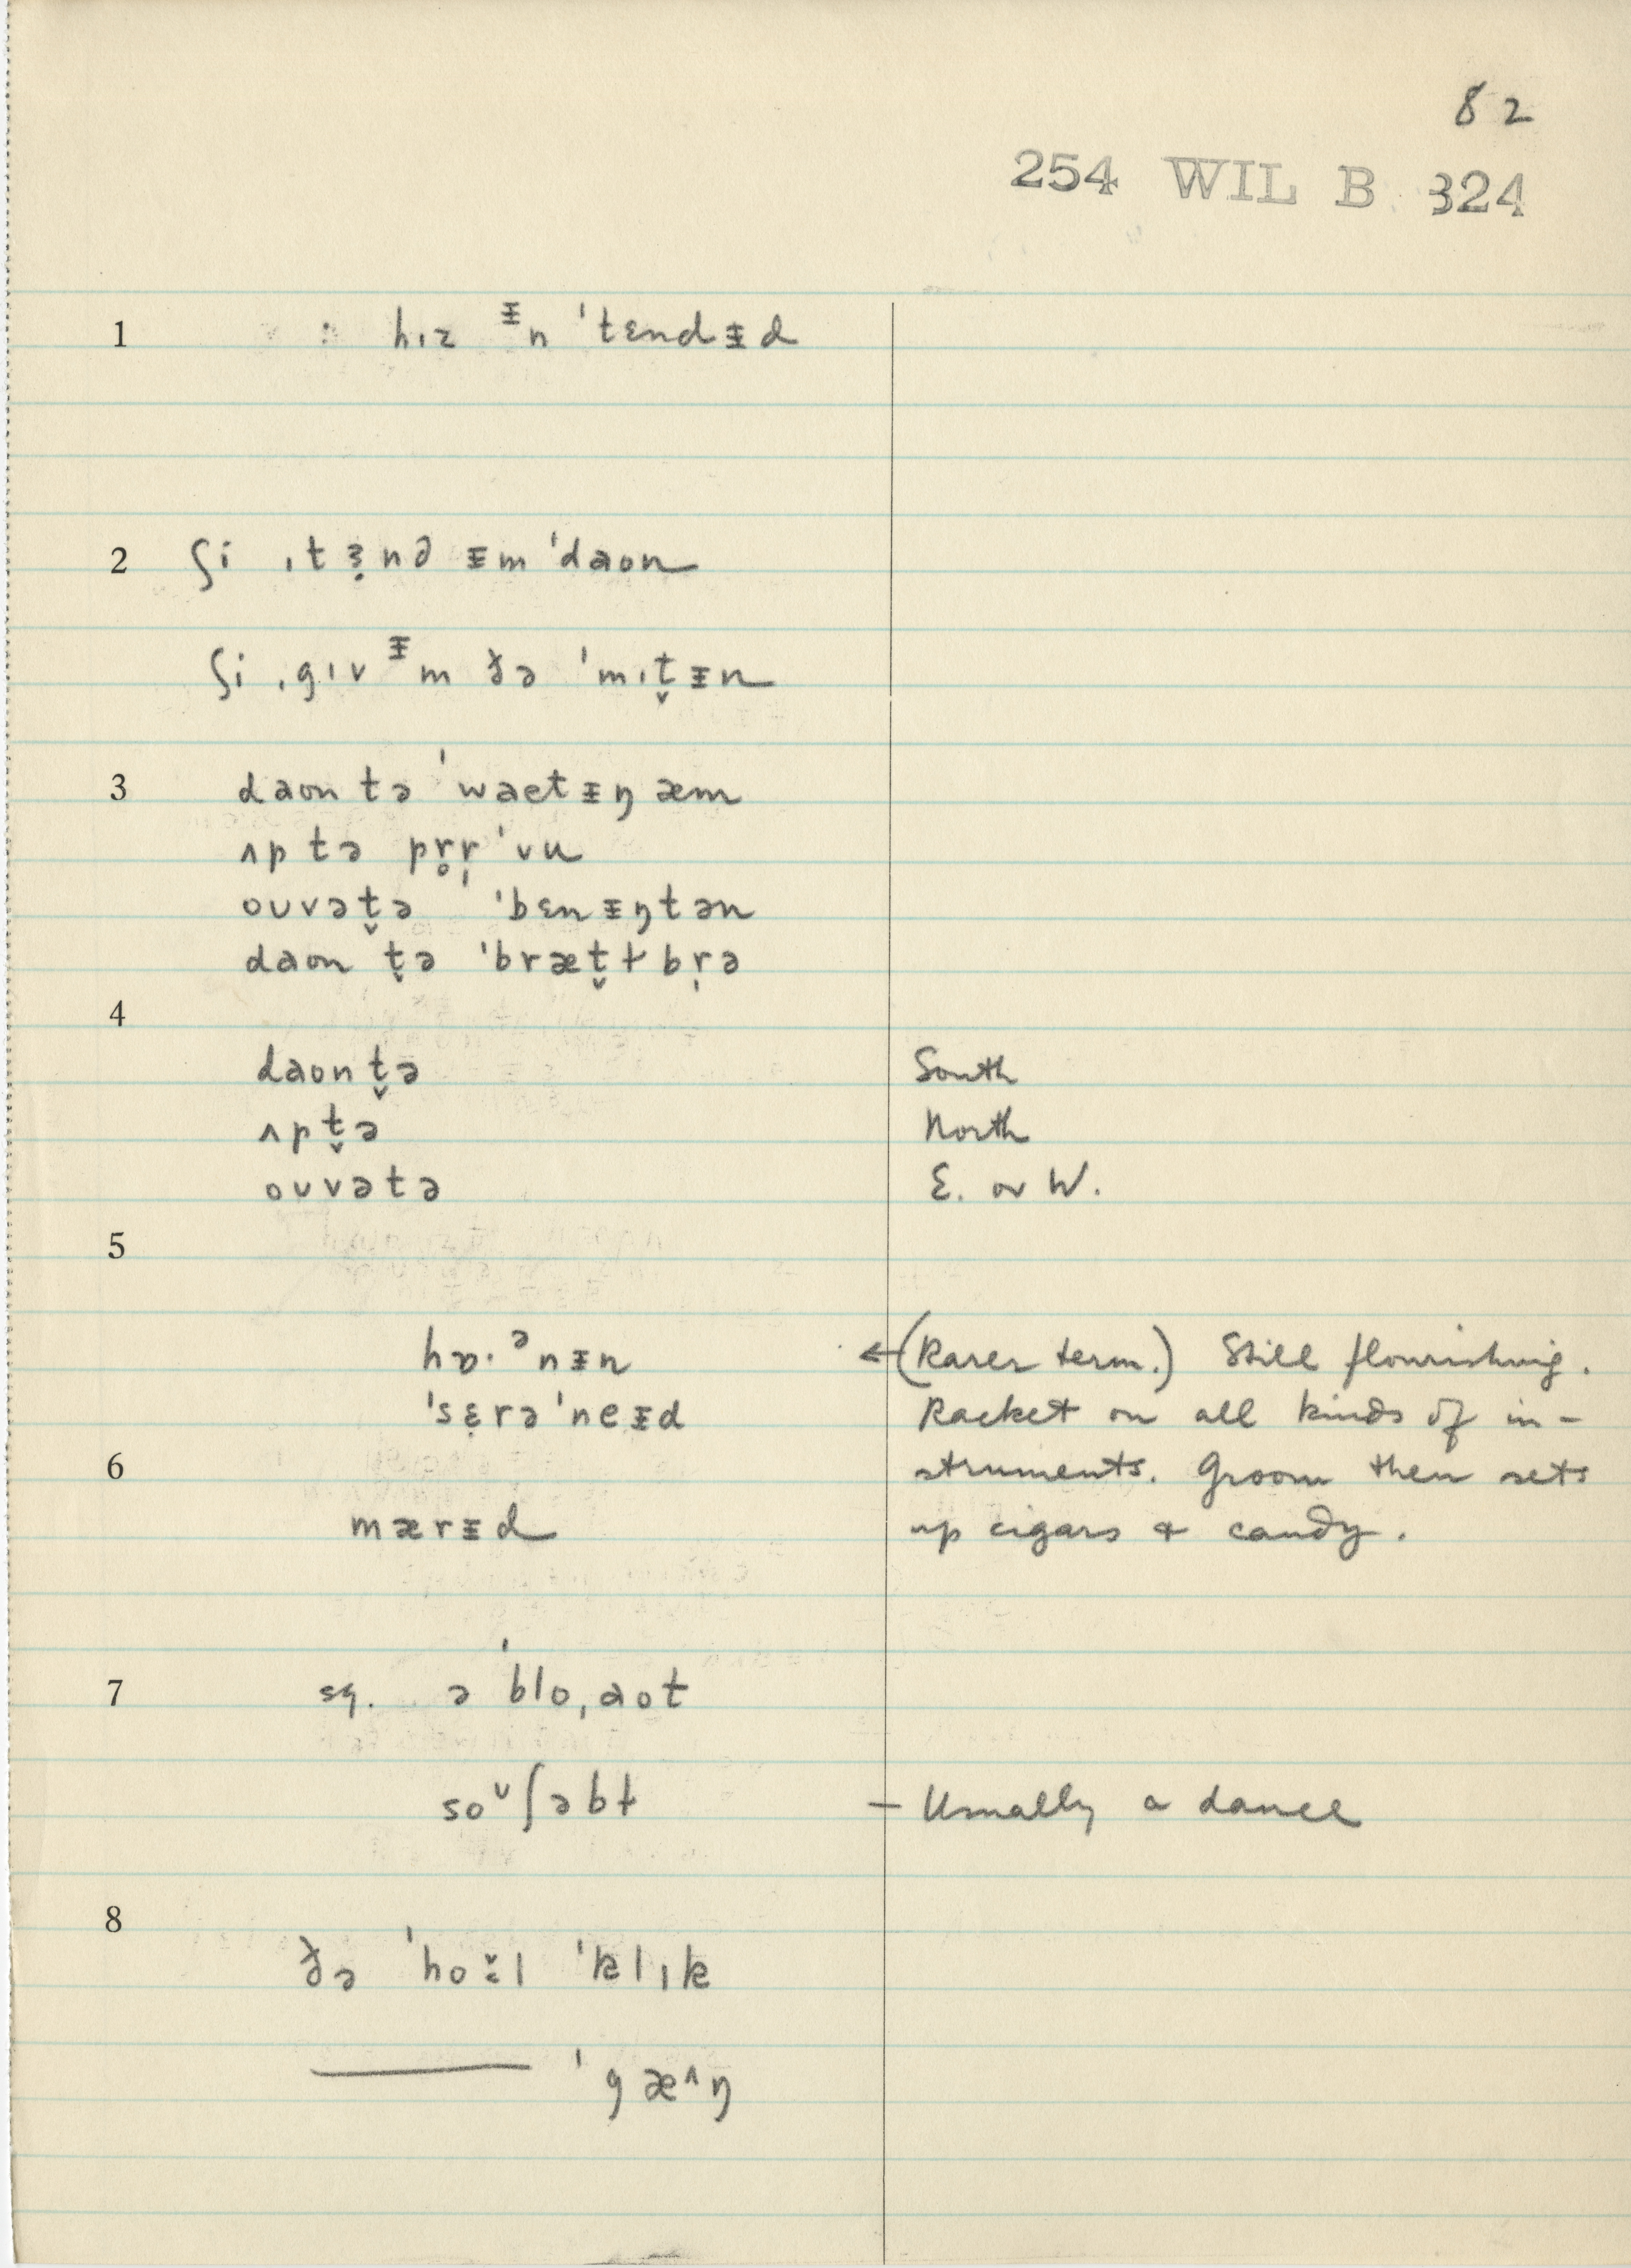 82
254 WIL B 324
1 : hɪz ᵻn ˈtɛndᵻd
2 ʃi ˌtɜ̣nd ᵻm ˈdaon
ʃi ˌgɪv ᵻm ðə ˈmɪt̬ᵻn
3 daon tə ˈwaetᵻŋ æm
ʌp tə pr̥r̩ ˈvu
ouvət̬ə ˈbɛnᵻŋtən
daon t̬ə ˈbræt̬ɫbr̩ə
4
daon t̬ə South
ʌp t̬ə North
ouvətə E. or W.
5
hɒ·ᵊnᵻn ←(Rarer term.) Still flourishing.
ˈsɛ̣rəˈneᵻd Racket on all kinds of in-
6 struments. Groom then sets
mærᵻd up cigars & candy.
7 sq. ə ˈbloˌaot
soᵛʃəbɫ – Usually a dance
8
ðə ˈhoɫ̆l ˈklɪk
——— ˈgæ^ŋ